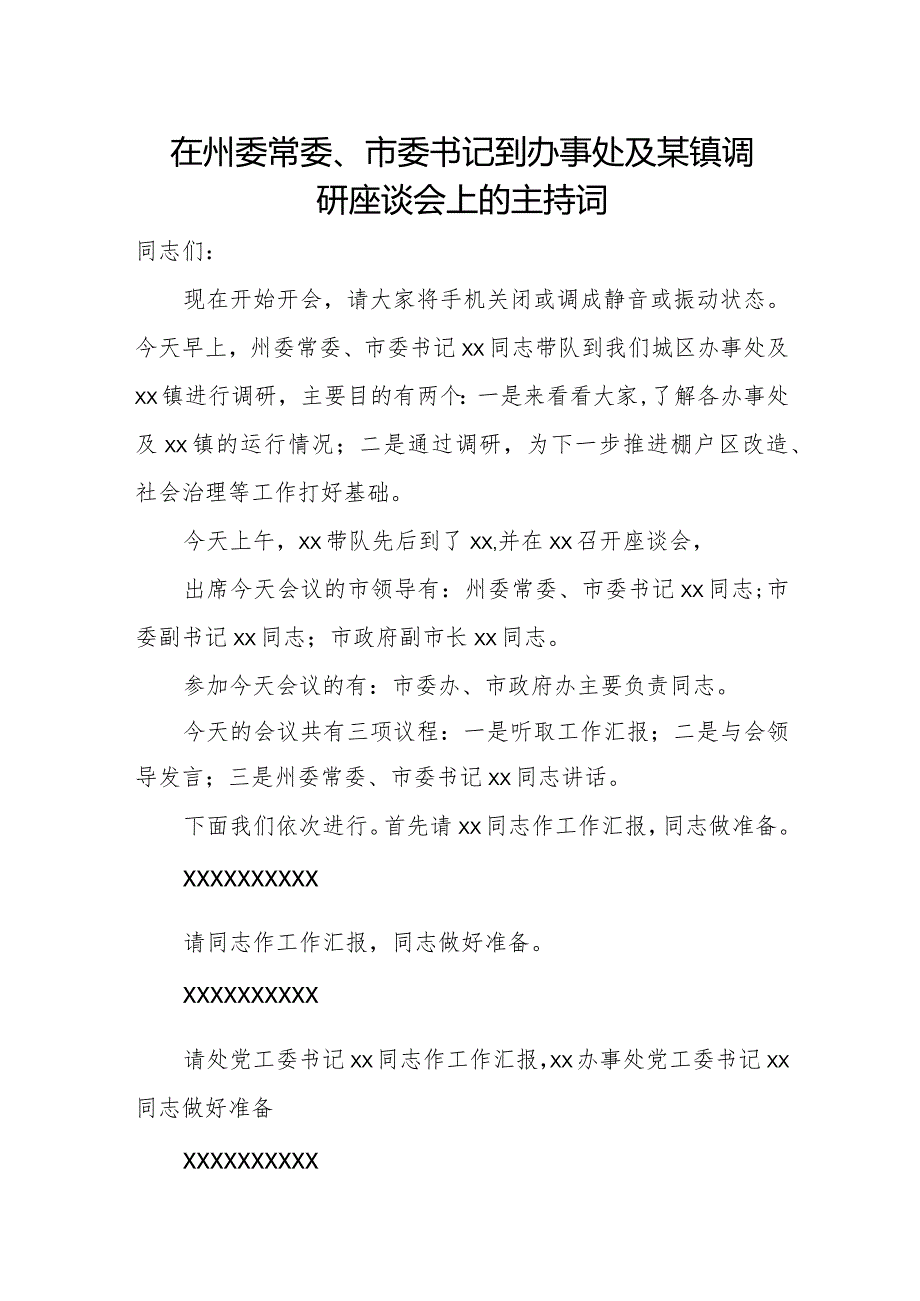 在州委常委、市委书记到办事处及某镇调
研座谈会上的主持词
同志们：
现在开始开会，请大家将手机关闭或调成静音或振动状态。
今天早上，州委常委、市委书记xx同志带队到我们城区办事处及
xx镇进行调研，主要目的有两个：一是来看看大家,了解各办事处
及xx镇的运行情况；二是通过调研，为下一步推进棚户区改造、
社会治理等工作打好基础。
今天上午，xx带队先后到了xx,并在xx召开座谈会，
出席今天会议的市领导有：州委常委、市委书记xx同志;市
委副书记xx同志；市政府副市长xx同志。
参加今天会议的有：市委办、市政府办主要负责同志。
今天的会议共有三项议程：一是听取工作汇报；二是与会领
导发言；三是州委常委、市委书记xx同志讲话。
下面我们依次进行。首先请xx同志作工作汇报，同志做准备。
XXXXXXXXXX
请同志作工作汇报，同志做好准备。
XXXXXXXXXX
请处党工委书记xx同志作工作汇报，xx办事处党工委书记xx
同志做好准备
XXXXXXXXXX